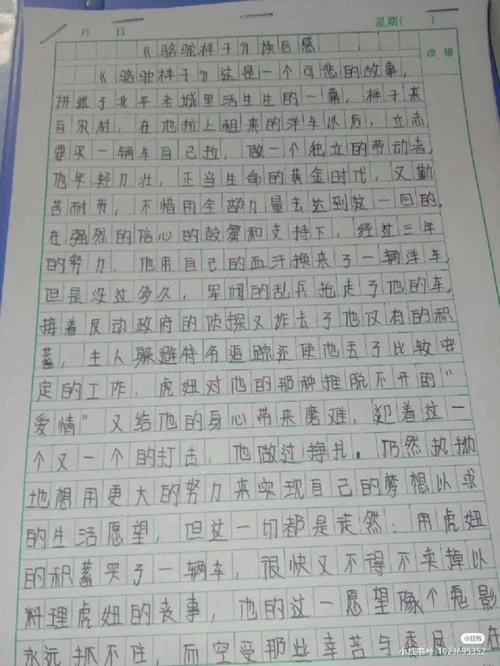 月 日 星期( )
《骆驼祥子》读后感 改错
《骆驼祥子》这是一个可悲的故事,
讲述了北平老城里活生生的一幕,祥子来
自农村,在他拉上租来的洋车以后,立志
要买一辆车自己拉,做一个独立的劳动者,
他年轻力壮,正当生命的黄金时代,又勤
苦耐劳,不惜用全部力量去达到这一目的,
在强烈的信心的鼓舞和支持下,经过三年
的努力,他用自己的血汗换来了一辆洋车,
但是没过多久,军阀的乱兵抢走了他的车,
接着反动政府的侦探又诈去了他仅有的积
蓄,主人躲避特务追踪还使他丢了比较安
定的工作,虎妞对他的那种推脱不开的"
爱情"又给他的身心带来磨难,迎着这一
个又一个的打击,他做过挣扎,仍然执拗
地想用更大的努力来实现自己的梦想以求
的生活愿望,但这一切都是徒然:用虎妞
的积蓄买了一辆车,很快又不得不卖掉以
料理虎妞的丧事,他的这一愿望像个鬼影
永远抓不住,而空受那些辛苦与委屈,在
小红书
小红书号:1023695352